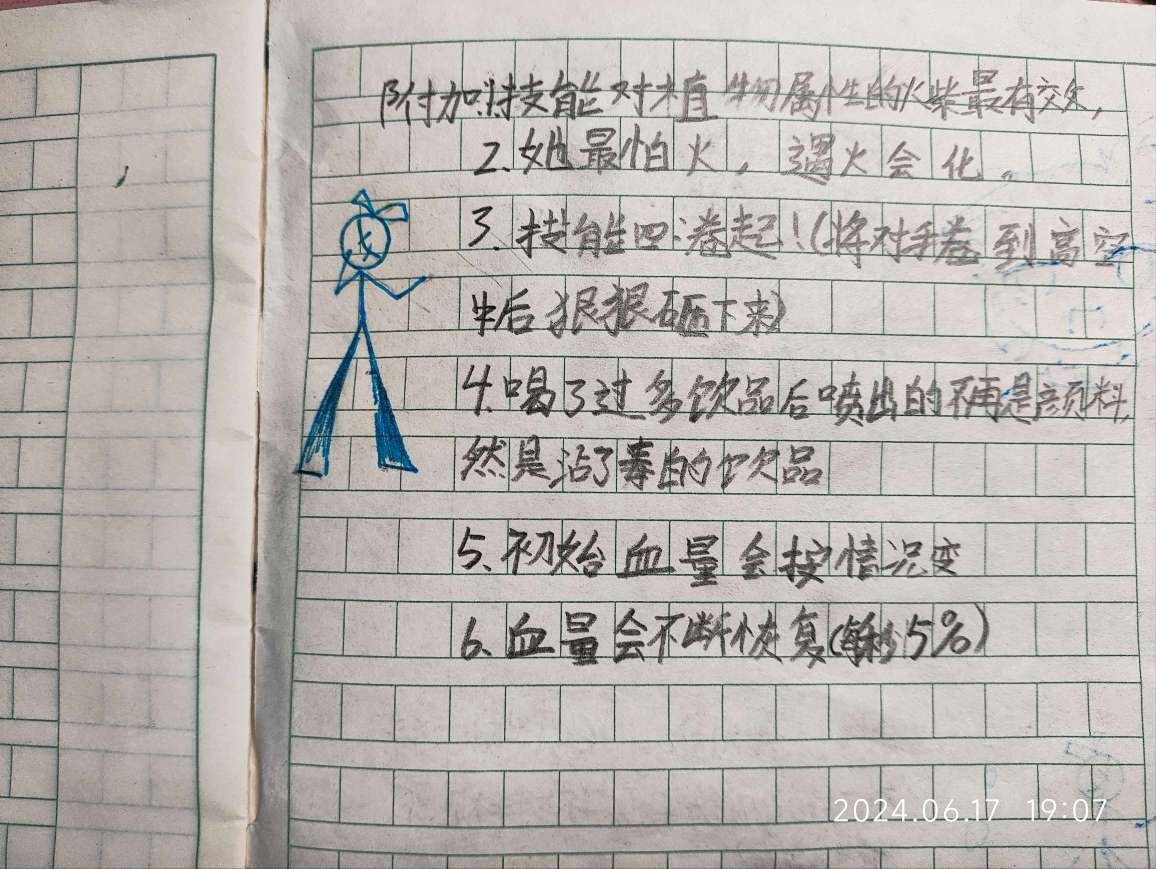 附加:技能对植物属性的火柴最有交攵,
2.她最怕火，遇火会化。
3.技能四:卷起!(将对手卷到高空
牛后狠狠砸下来)
4.喝了过多饮品后喷出的不再是颜料,
然是沾了毒的饮品
5.初始血量会按情况变
6.血量会不断恢复(每秒5%)
2024.06.17 19:07